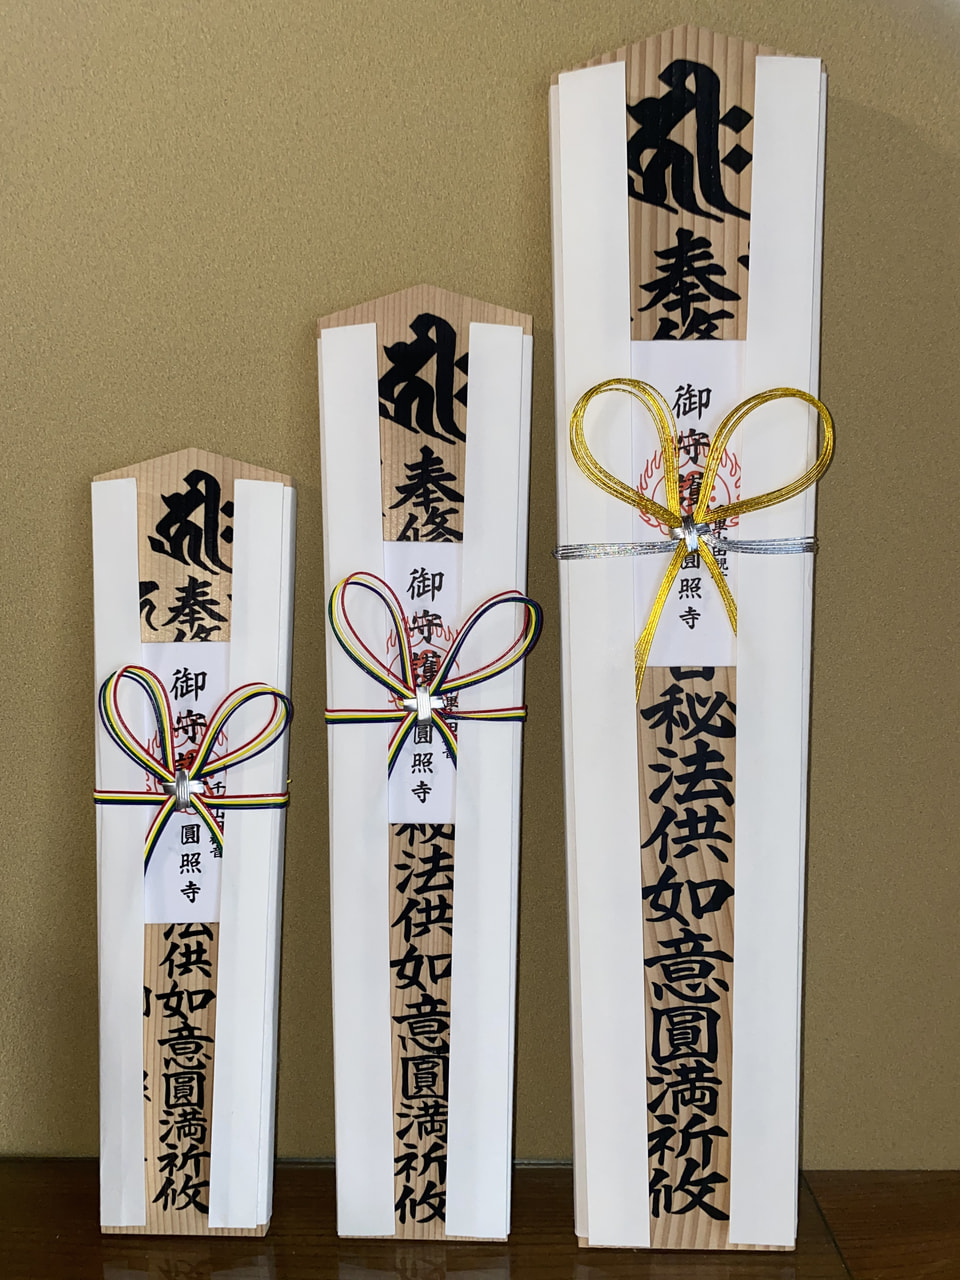 奉修
御守護
圓照寺
法供如意圓満祈攸
奉修
御守護
圓照寺
秘法供如意圓満祈攸
奉修
御守護
圓照寺
秘法供如意圓満祈攸